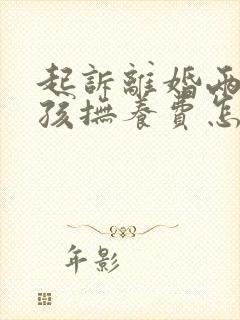 起訴離婚兩
孩撫養費怎
年影